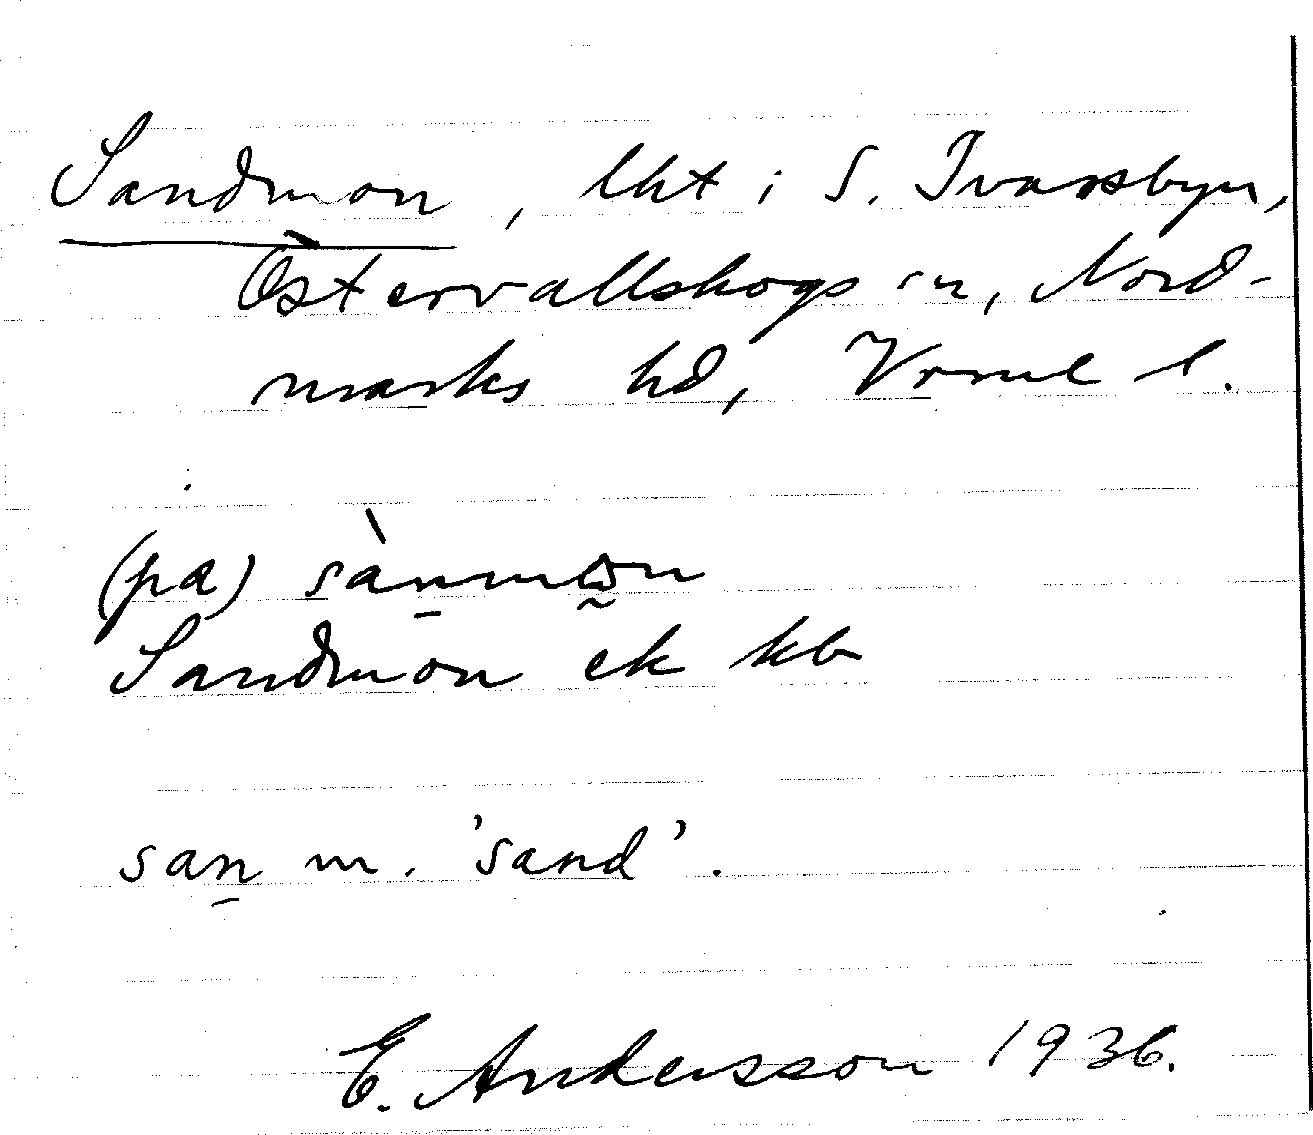 Sandmon, lht i S. Ivarsbyn,
Östervallskogs sn, Nord-
marks hd, Vrml l.
(pa) sànmɷn
Sandmon ek kb
san m. 'sand'.
E. Andersson 1936.